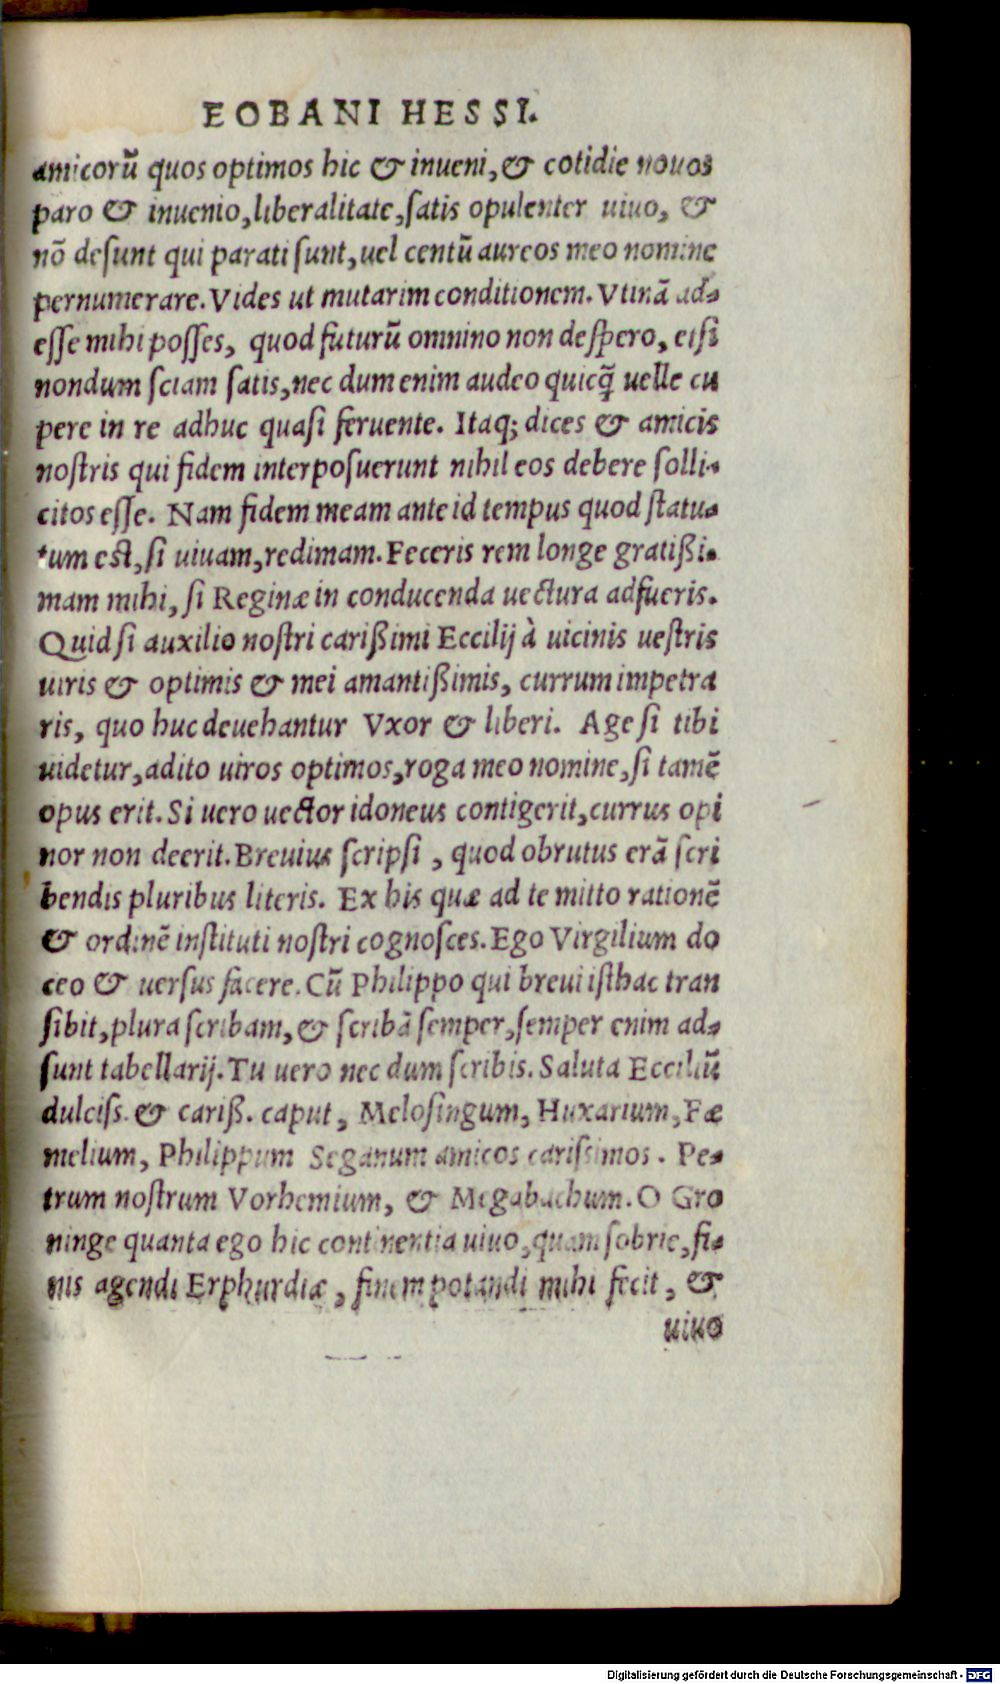 EOBANI HESSI.
amicorũ quos optimos hic & inueni, & cotidie nouos
paro & inuenio, liberalitate, ſatis opulenter uiuo, &
nõ deſunt qui parati ſunt, uel centũ aureos meo nomine
pernumerare. Vides ut mutarim conditionem. Vtinã ad-
eſſe mihi poſſes, quod futurũ omnino non deſpero, etſi
nondum ſciam ſatis, nec dum enim audeo quicq̃ uelle cu
pere in re adhuc quaſi feruente. Itaq; dices & amicis
noſtris qui fidem interpoſuerunt nihil eos debere ſolli-
citos eſſe. Nam fidem meam ante id tempus quod ſtatu-
tum eſt, ſi uiuam, redimam. Feceris rem longe gratißi-
mam mihi, ſi Reginæ in conducenda uectura adfueris.
Quid ſi auxilio noſtri carißimi Eccilij à uicinis ueſtris
uiris & optimis & mei amantißimis, currum impetra
ris, quo huc deuehantur Vxor & liberi. Age ſi tibi
uidetur, adito uiros optimos, roga meo nomine, ſi tamẽ
opus erit. Si uero uector idoneus contigerit, currus opi
nor non deerit. Breuius ſcripſi, quod obrutus erã ſcri
bendis pluribus literis. Ex his quæ ad te mitto rationẽ
& ordinẽ inſtituti noſtri cognoſces. Ego Virgilium do
ceo & uerſus facere. Cũ Philippo qui breui iſthac tran
ſibit, plura ſcribam, & ſcribã ſemper, ſemper enim ad-
ſunt tabellarij. Tu uero nec dum ſcribis. Saluta Ecciliũ
dulciſs. & cariß. caput, Meloſingum, Huxarium, Fæ
melium, Philippum Seganum amicos cariſsimos. Pe-
trum noſtrum Vorhemium, & Megabachum. O Gro
ninge quanta ego hic continentia uiuo, quam ſobrie, fi-
nis agendi Erphurdiæ, finem potandi mihi fecit, &
uiuo
Digitalisierung gefördert durch die Deutsche Forschungsgemeinschaft - DFG